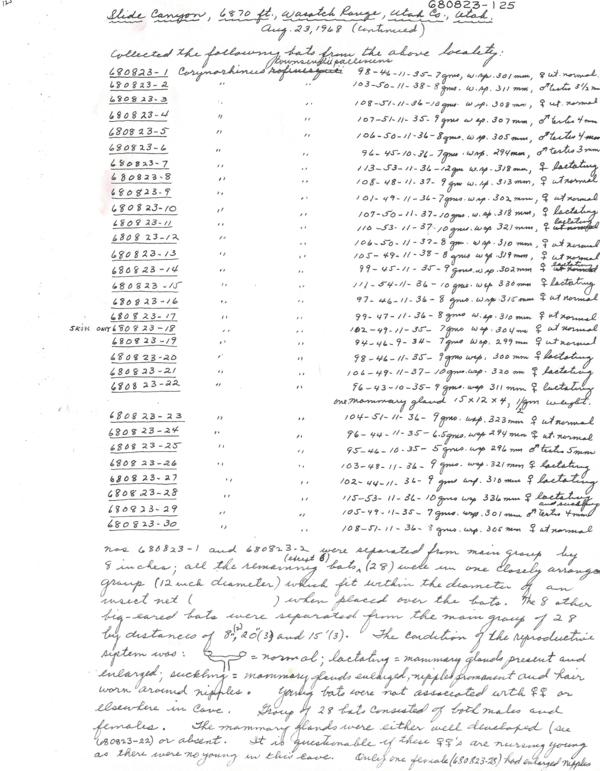 680823-125
Slide Canyon, 6870 ft., Wasatch Range, Utah Co., Utah.
Aug. 23, 1968 (continued)
Collected the following bats from the above locality:
townsendii pallescens
680823-1 Corynorhinus rafinesquii 98-46-11-35-7 gms, w.sp. 301 mm, ♀ ut. normal.
680823-2 " " 103-50-11-38-8 gms. w.sp. 311 mm, ♂ testis 3½ m
680823-3 " " 108-51-11-36-10 gms w.sp. 308 mm, ♀ ut. normal
680823-4 " " 107-51-11-35-9 gms w.sp. 307 mm, ♂ testis 4 mm
680823-5 " " 106-50-11-36-8 gms. w.sp. 305 mm, ♂ testes 4 mm
680823-6 " " 96-45-10-36-7 gms. w.sp. 294 mm, ♂ testes 3 mm
680823-7 " " 113-53-11-36-12 gm w.sp. 318 mm, ♀ lactating
680823-8 " " 108-48-11-37-9 gm w.sp. 313 mm, ♀ ut normal
680823-9 " " 101-49-11-36-7 gms. w.sp. 302 mm, ♀ ut normal
680823-10 " " 107-50-11-37-10 gms. w.sp. 318 mm, ♀ lactating
680823-11 " " 110-53-11-37-10 gms. w.sp 321 mm, ♀ lactating
680823-12 " " 106-50-11-37-8 gm. w sp. 310 mm, ♀ ut normal
680823-13 " " 105-49-11-38-8 gms w sp 319 mm, ♀ ut normal
680823-14 " " 99-45-11-35-9 gms. w.sp. 302 mm ♀ lactating
680823-15 " " 111-54-11-36-10 gms. w sp 330 mm ♀ lactating
680823-16 " " 97-46-11-36-8 gms. w.sp 315 mm ♀ ut normal
680823-17 " " 99-47-11-36-8 gms. w.sp. 310 mm ♀ ut normal
SKIN ONLY 680823-18 " " 102-49-11-35-7 gms w sp. 304 mm ♀ ut normal
680823-19 " " 94-46-9-34-7 gms w.sp. 299 mm ♀ ut normal
680823-20 " " 98-46-11-35-9 gms wsp. 300 mm ♀ lactating
680823-21 " " 106-49-11-37-10 gms. wsp. 320 mm ♀ lactating
680823-22 " " 96-43-10-35-9 gms. wsp 311 mm ♀ lactating
one mammary gland 15x12x4, ½ gm weight.
680823-23 " " 104-51-11-36-9 gms. wsp. 323 mm ♀ ut normal
680823-24 " " 96-44-11-35-6.5 gms. wsp 294 mm ♀ ut normal
680823-25 " " 95-46-10-35-5 gms. wsp 296 mm ♂ testis 5 mm
680823-26 " " 103-48-11-36-9 gms. wsp. 321 mm ♀ lactating
680823-27 " " 102-44-11-36-9 gms wsp. 310 mm ♀ lactating
680823-28 " " 115-53-11-36-10 gms wsp 336 mm ♀ lactating and suckling
680823-29 " " 105-49-11-35-7 gms. wsp. 301 mm ♂ testis 4 mm
680823-30 " " 108-51-11-36-8 gms. wsp. 305 mm ♀ ut normal
nos 680823-1 and 680823-2 were separated from main group by
8 inches; all the remaining bats, (except 8) (28) were in one closely arrange
group (12 inch diameter) which fit within the diameter of an
insect net ( ) when placed over the bats. The 8 other
big-eared bats were separated from the main group of 28
by distances of 8"(2), 20"(3) and 15'(3). The condition of the reproductive
system was: = normal; lactating = mammary glands present and
enlarged; suckling = mammary glands enlarged, nipples prominent and hair
worn around nipples. Young bats were not associated with ♀♀ or
elsewhere in cave. Group of 28 bats consisted of both males and
females. The mammary glands were either well developed (see
680823-22) or absent. It is questionable if these ♀♀'s are nursing young
as there were no young in this cave. Only one female (680823-28) had enlarged nipples